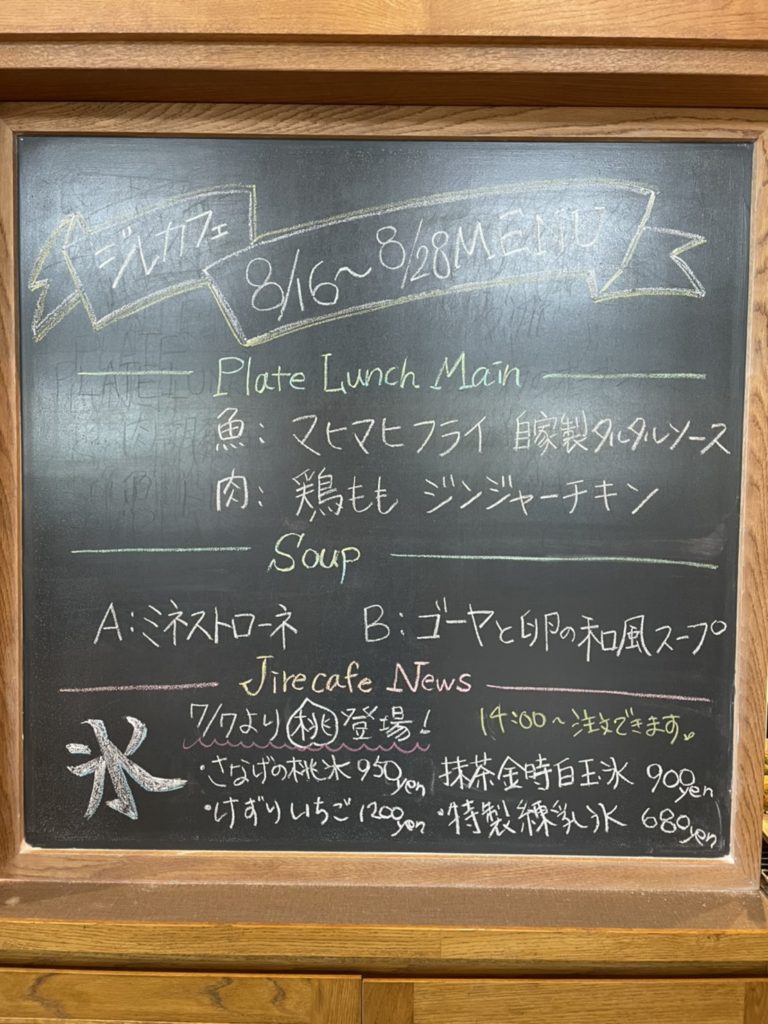 ジルカフェ
8/16〜8/28 MENU
Plate Lunch Main
魚: マヒマヒフライ 自家製タルタルソース
肉: 鶏もも ジンジャーチキン
Soup
A:ミネストローネ B:ゴーヤと卵の和風スープ
Jirecafe News
氷
7/7より桃登場! 14:00〜注文できます。
・さなげの桃氷 950yen 抹茶金時白玉氷 900yen
・けずりいちご 1200yen ・特製練乳氷 680yen